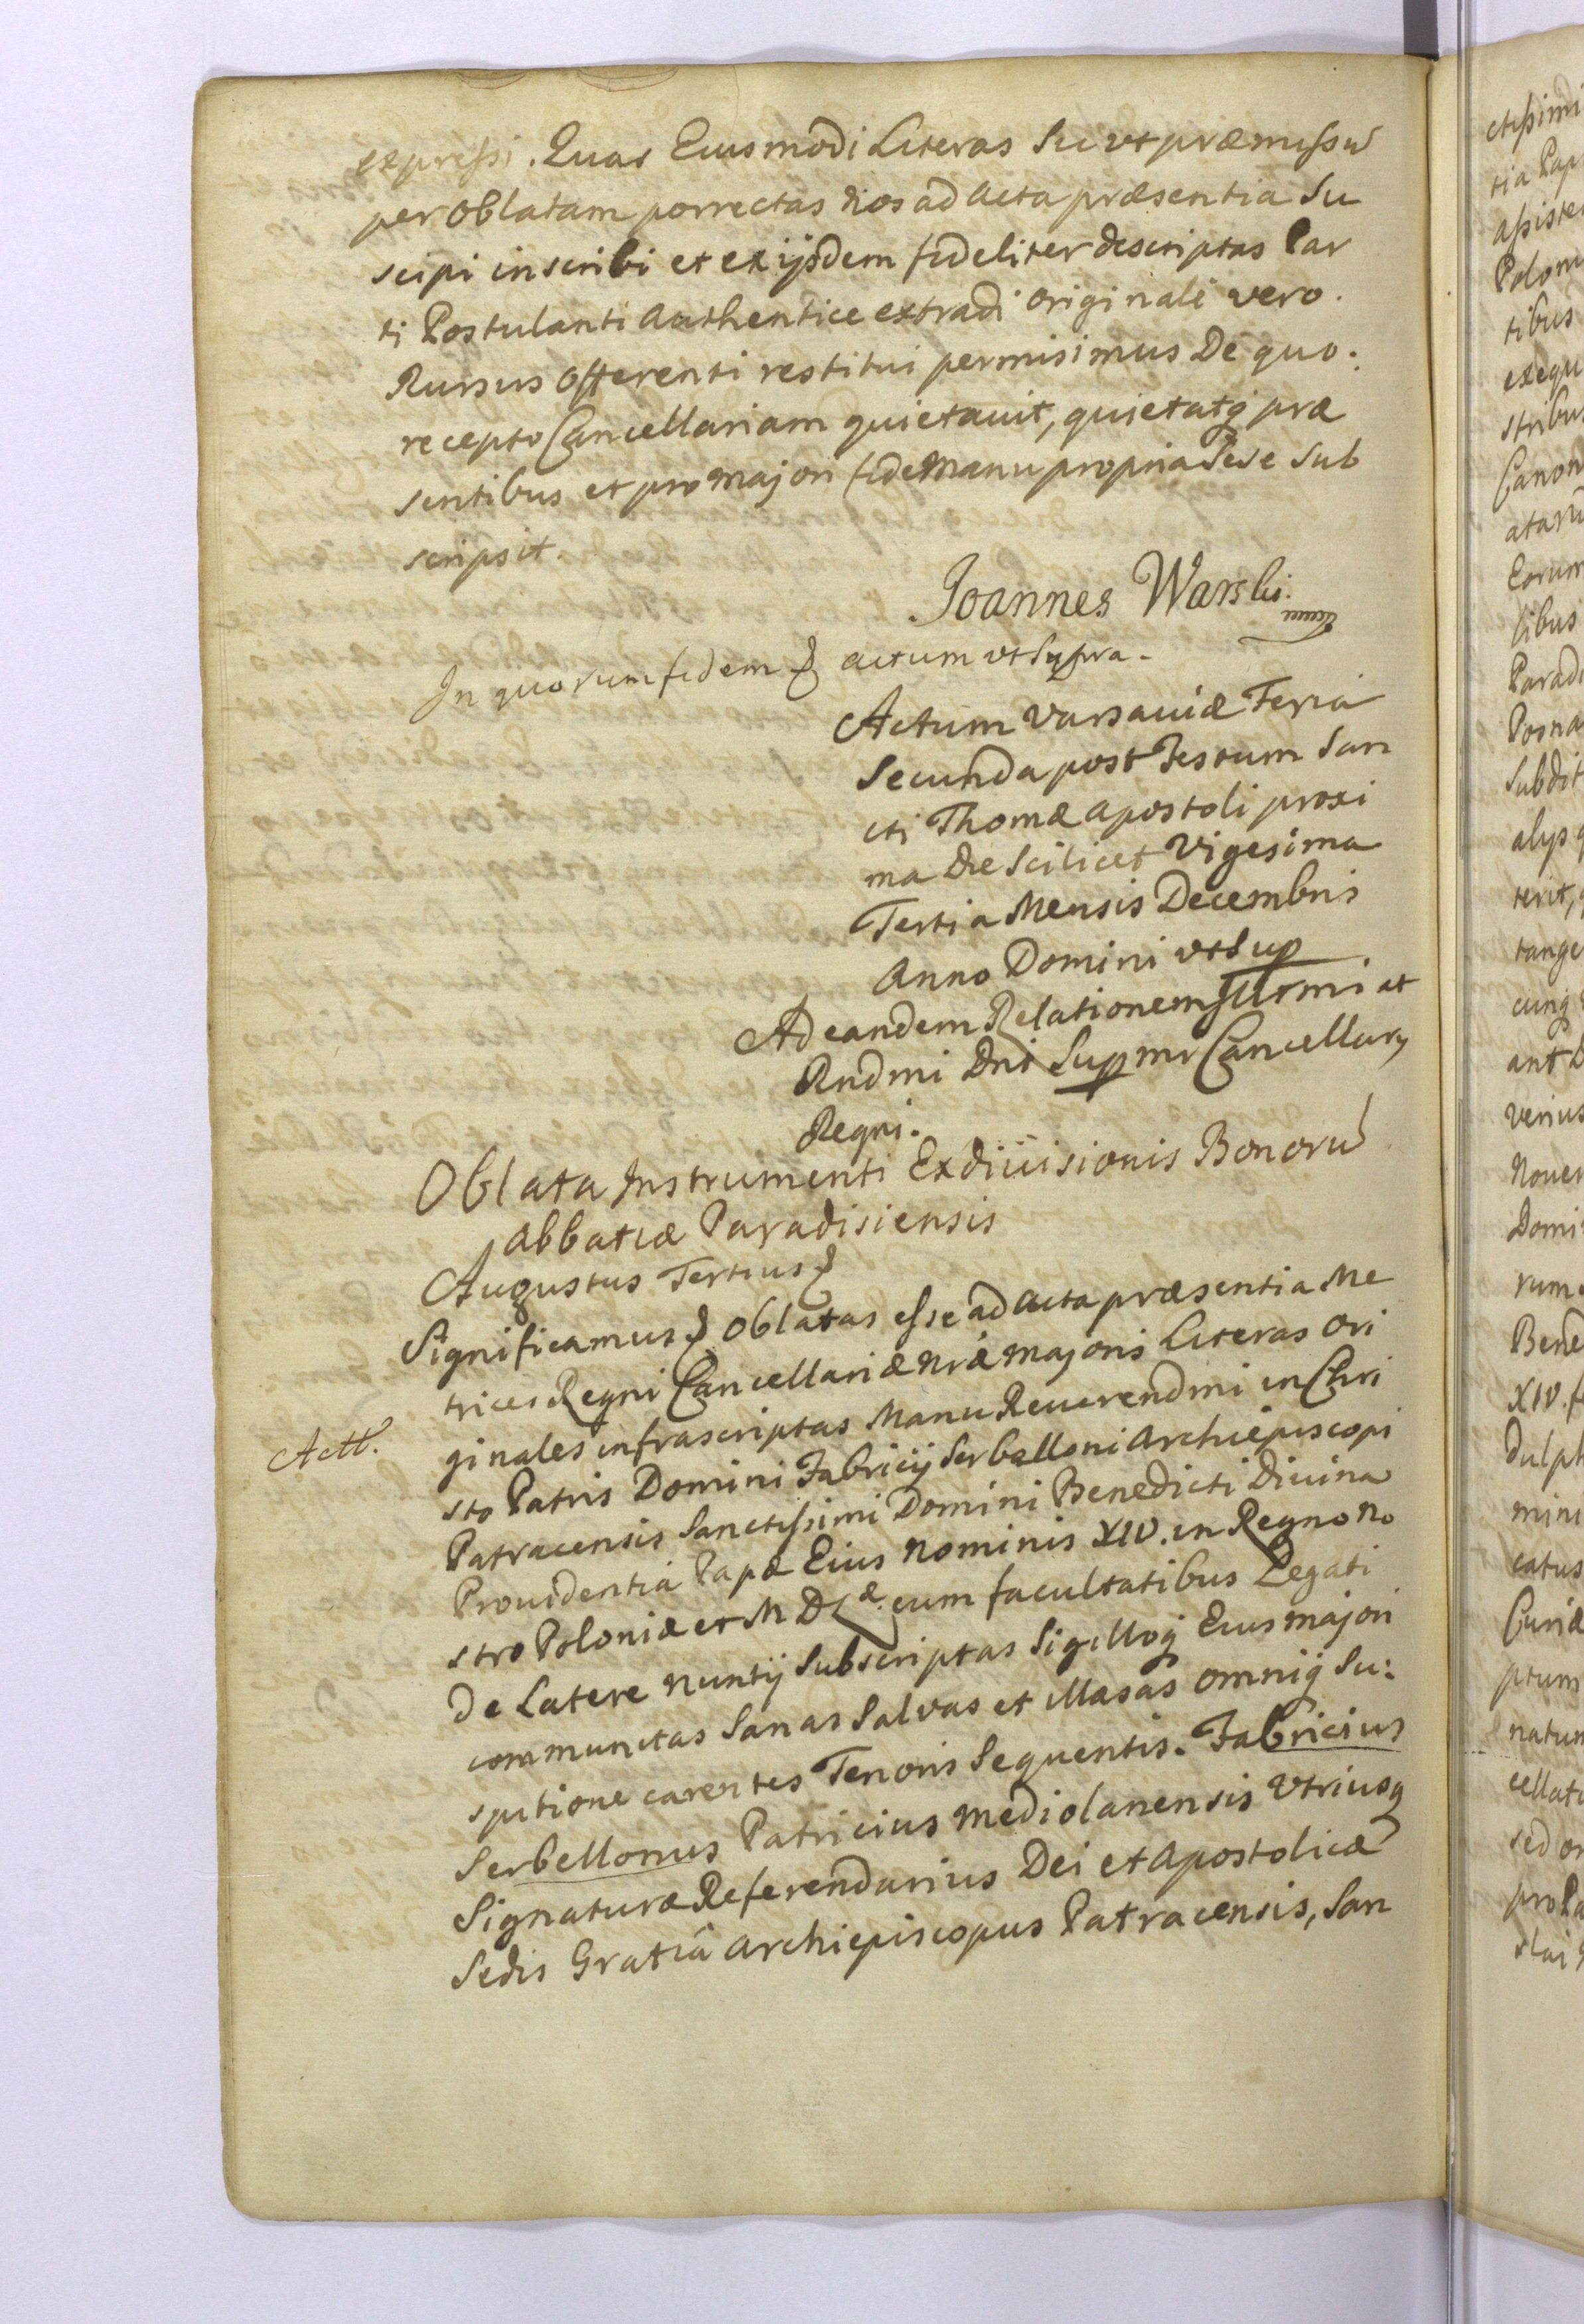 expressi. Quas Eiusmodi Literas Sic vt præmissũ
per Oblatam porrectas Nos ad Acta præsentia Su
scipi inscribi et ex ijsdem fideliter descriptas Par
ti Postulanti Authentice extradi Originali vero
Rursus Offerenti restitui permisimus De quo
recepto Cancellariam quietauit, quietatq præ
sentibus et pro Majori fide Manu propria Sese Sub
scripsit.
Joannes Warski
In quorum fidem & actum vt Supra.
Actum Varsaviæ Feria
Secunda post Festum San
cti Thomæ Apostoli proxi
ma Die Scilicet Vigesima
Tertia Mensis Decembris
Anno Domini vt Sup
Ad eandem Relationem Illrmi at
Rndmi Dni Supmi Cancellary
Regni.
Oblata Instrumenti Exdivisionis Bonorũ
Abbatiæ Paradisiensis
Augustus Tertius &
Significamus & Oblatas esse ad Acta præsentia Me
trices Regni Cancellariæ Nræ Majoris Literas Ori
Actt.
ginales infrascriptas Manu Reuerendmi in Chri
sto Patris Domini Fabricij Serbelloni Archiepiscopi
Patracensis Sanctissimi Domini Benedicti Diuina
Prouidentia Papæ Eius Nominis XIV. in Regno No
stro Poloniæ et M D L æ. cum facultatibus Legati
De Latere Nuntij Subscriptas Sigilloq Eius Majori
communitas Sanas Salvas et illæsas omniq Su:
spitione carentes Tenoris Sequentis. Fabricius
Serbellonus Patricius Mediolanensis Vtriusq
Signaturæ Referendarius Dei et Apostolicæ
Sedis Gratiâ Archiepiscopus Patracensis, San
ctissimi
tia Pap
assiste
Polon
tibus
exequ
stribus
Canon
atarũ
Eorum
Paradi
Posna
Subdit
alys
terit,
tange
cunq
ant D
verius
Nouer
Domi
rum
Bene
XIV. f
Dulph
mini
catus
Curiæ
ptum
natum
cellat
sed or
pro Pa